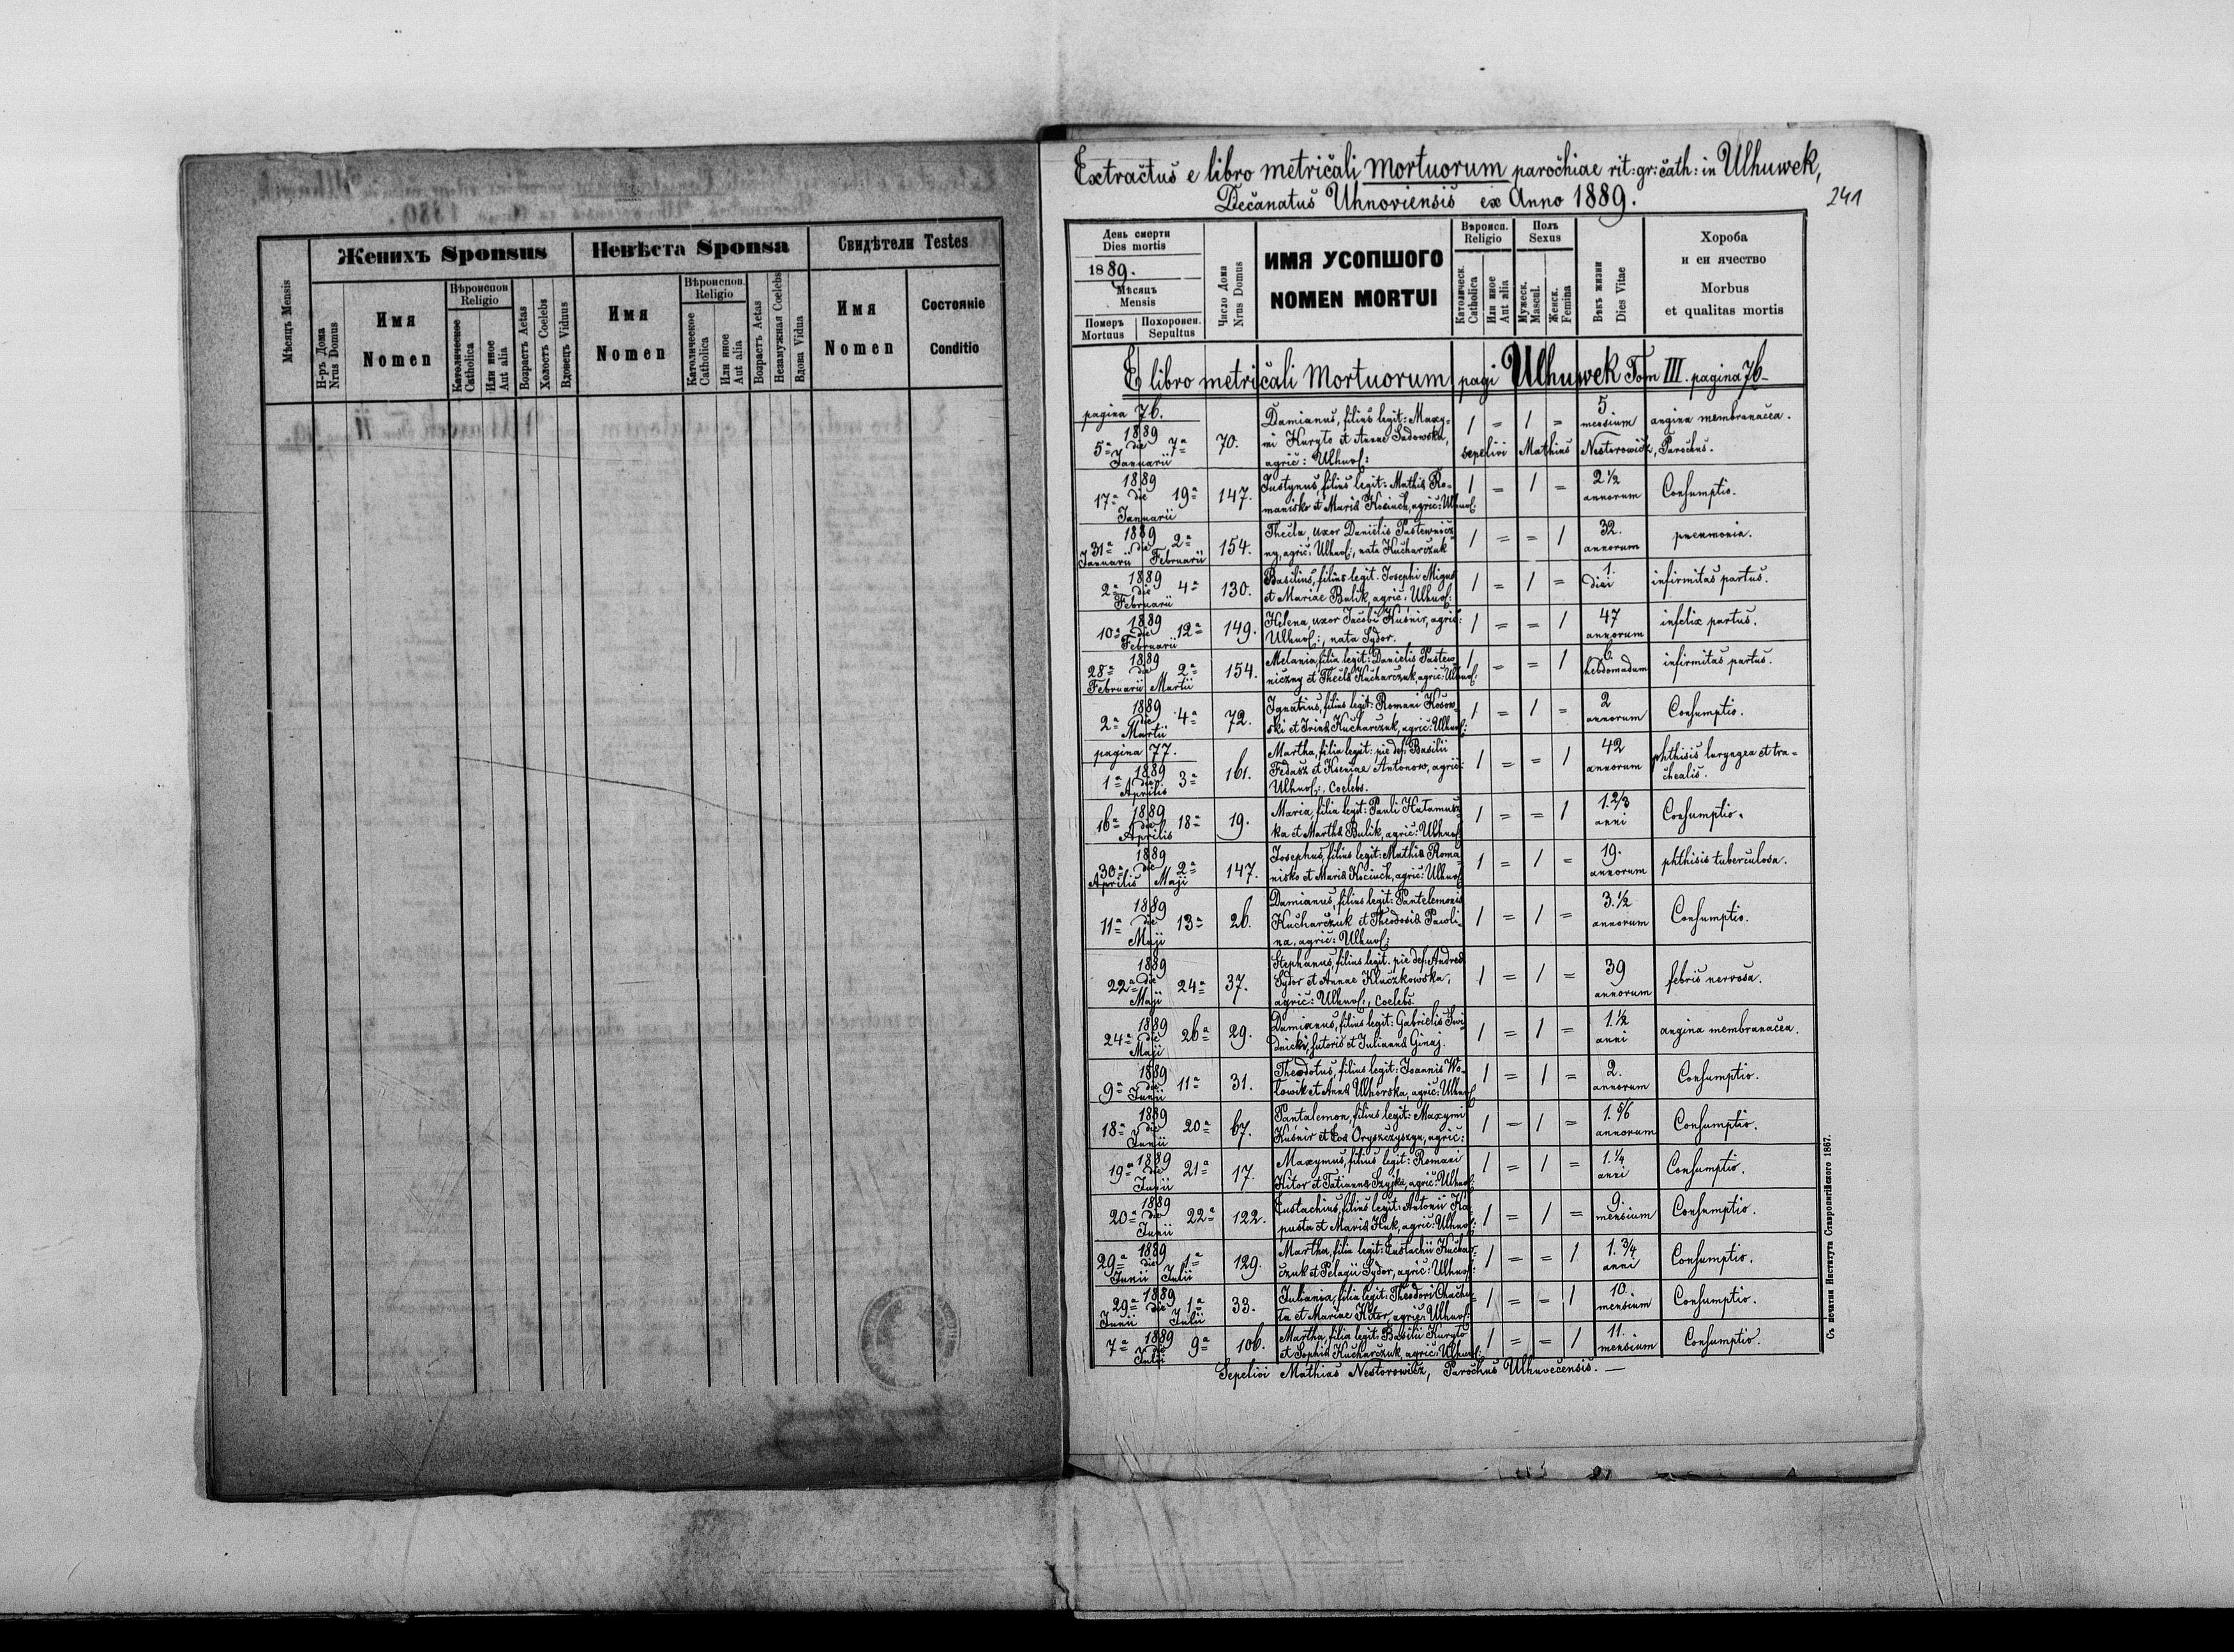 Мѣсяцъ Mensis
Женихъ Sponsus
Невѣста Sponsa
Свидѣтели Testes
Н-ръ Дома
Nrus Domus
Имя
Nomen
Вѣроиспов
Religio
Католическое
Catholica
Или иное
Aut alia
Возрастъ Aetas
Холостъ Coelebs
Вдовецъ Viduus
Имя
Nomen
Вѣроиспов.
Religio
Католическое
Catholica
Или иное
Aut alia
Возрастъ Aetas
Незамужная Coelebs
Вдова Vidua
Имя
Nomen
Состояніе
Conditio
Extractus e libro metricali mortuorum parochiae rit: gr: cath: in Ulhuwek,
Decanatus Uhnoviensis ex Anno 1889.
241
День смерти
Dies mortis
1889.
Мѣсяцъ
Mensis
Померъ
Mortuus
Похоронен.
Sepultus
Число Дома
Nrus Domus
ИМЯ УСОПШОГО
NOMEN MORTUI
Вѣроисп.
Religio
Католическ.
Catholica
Или иное
Aut alia
Полъ
Sexus
Мужеск.
Mascul.
Женск.
Femina
Вѣкъ жизни
Dies Vitae
Хороба
и еи ячество
Morbus
et qualitas mortis
E libro metricali Mortuorum pagi Ulhuwek Tom III. pagina 76
pagina 76.
1889 5a die 7a Januarii 70. Damianus, filius legit: Maxy-
mi Kuryło et Annae Sadowska,
agric: Ulhuv: 1 = 1 = 5 mensium angina membranacea.
sepelivi Mathias Nestorowicz, Parochus.
1889 17a die 19a Januarii 147. Justynus, filius legit: Mathia Ro-
manisko et Maria Kociuch, agric: Ulhuv: 1 = 1 = 2 1/2 annorum Consumptio.
1889 31a Januarii die 2a Februarii 154. Thecla, uxor Danielis Pastewnicz-
ny, agric: Ulhuv:, nata Kucharczuk 1 = = 1 32. annorum pneumonia.
1889 2a die 4a Februarii 130. Basilius, filius legit. Josephi Migus
et Mariae Bulik, agric: Ulhuv: 1 = 1 = 1. diei infirmitas partus.
1889 10a die 12a Februarii 149. Helena, uxor Jacobi Kuśnir, agric:
Ulhuv:, nata Sydor. 1 = = 1 47 annorum infelix partus.
1889 28a Februarii die 2a Martii 154. Melania, filia legit: Danielis Pastew-
niczny et Thecla Kucharczuk, agric: Ulhuv: 1 = = 1 6. hebdomadum infirmitas partus.
1889 2a die 4a Martii 72. Ignatius, filius legit: Romani Kosow-
ski et Irina Kucharczuk, agric: Ulhuv: 1 = 1 = 2 annorum Consumptio.
pagina 77.
1889 1a die 3a Aprilis 161. Martha, filia legit: pie def: Basilii
Fedasz et Kseniae Antonow, agric:
Ulhuv:, Coelebs. 1 = = 1 42 annorum phthisis laryngea et tra-
chealis.
1889 16a die 18a Aprilis 19. Maria, filia legit: Pauli Hatamusz-
ka et Martha Bulik, agric: Ulhuv: 1 = = 1 1. 2/3 anni Consumptio.
1889 30a Aprilis die 2a Maji 147. Josephus, filius legit: Mathia Roma-
nisko et Maria Kociuch, agric: Ulhuv: 1 = 1 = 19. annorum phthisis tuberculosa.
1889 11a die 13a Maji 26. Damianus, filius legit: Pantelemonis
Kucharczuk et Theodosia Pawli-
na, agric: Ulhuv: 1 = 1 = 3. 1/2 annorum Consumptio.
1889 22a die 24a Maji 37. Stephanus, filius legit. pie def: Andrea
Sydor et Annae Kluczkowska,
agric: Ulhuv:, Coelebs. 1 = 1 = 39 annorum febris nervosa.
1889 24a die 26a Maji 29. Damianus, filius legit: Gabrielis Swi-
dnicki, sutoris et Julianna Ginaj. 1 = 1 = 1. 1/2 anni angina membranacea.
1889 9a die 11a Junii 31. Theodotus, filius legit: Joannis Wo-
łowik et Anna Uhnorska, agric: Ulhuv: 1 = 1 = 2. annorum Consumptio.
1889 18a die 20a Junii 67. Pantalemon, filius legit: Maxymi
Kuśnir et Eva Oryszczyszyn, agric: 1 = 1 = 1. 5/6 annorum Consumptio.
1889 19a die 21a Junii 17. Maxymus, filius legit: Romani
Kitor et Tatianna Szyjka, agric: Ulhuv: 1 = 1 = 1. 1/4 anni Consumptio.
1889 20a die 22a Junii 122. Eustachius, filius legit: Antonii Ka-
pusta et Maria Huk, agric: Ulhuv: 1 = 1 = 9. mensium Consumptio.
1889 29a Junii die 1a Julii 129. Martha, filia legit: Eustachii Kuchar-
czuk et Pelagii Sydor, agric: Ulhuv: 1 = = 1 1. 3/4 anni Consumptio.
1889 29a Junii die 1a Julii 33. Julianna, filia legit: Theodori Chachu-
ła et Mariae Kitor, agric: Ulhuv: 1 = = 1 10. mensium Consumptio.
1889 7a die 9a Julii 106. Martha, filia legit: Basilii Kuryło
et Sophia Kucharczuk, agric: Ulhuv: 1 = = 1 11. mensium Consumptio.
Sepelivi Mathias Nestorowicz, Parochus Ulhuvecensis.
Съ печатни Института Ставропигійского 1867.